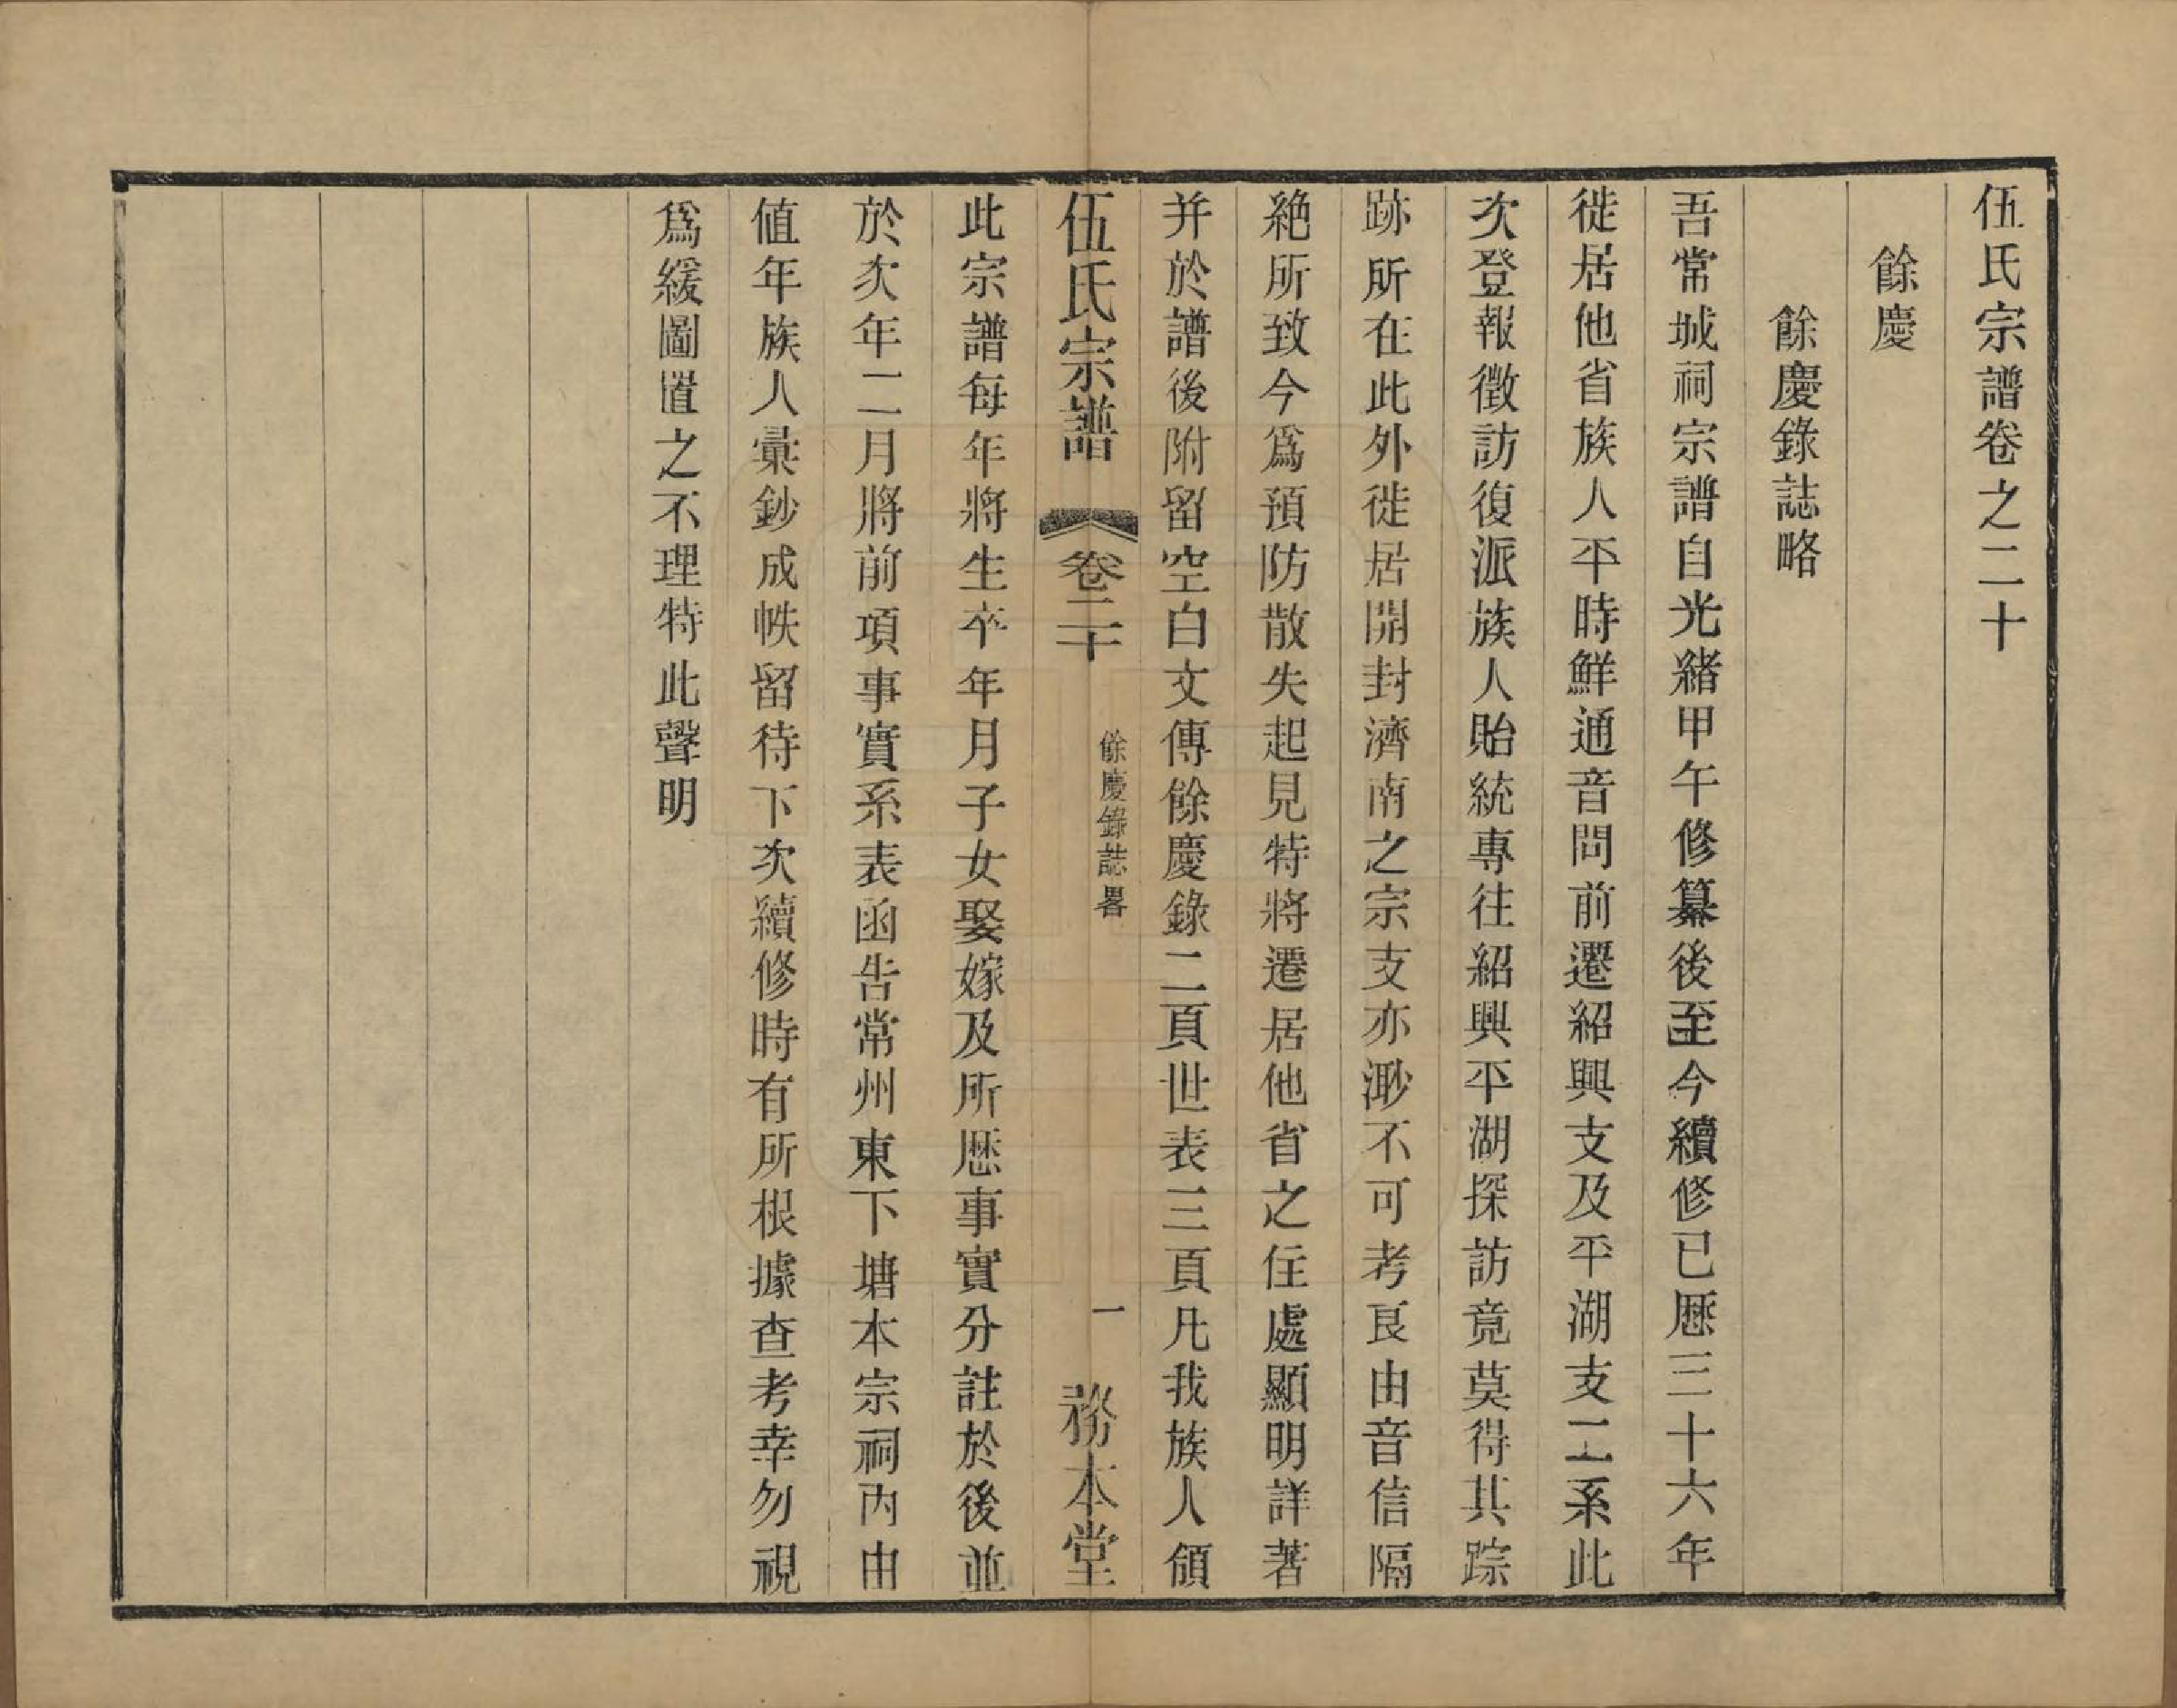 伍氏宗譜卷之二十
餘慶
餘慶錄誌略
吾常城祠宗譜自光緒甲午修纂後至今續修已歷三十六年
徙居他省族人平時鮮通音問前遷紹興支及平湖支二系此
次登報徵訪復派族人貽統專往紹興平湖探訪竟莫得其踪
跡所在此外徙居開封濟南之宗支亦渺不可考良由音信隔
絕所致今爲預防散失起見特將遷居他省之住處顯明詳著
并於譜後附留空白文傳餘慶錄二頁世表三頁凡我族人領
伍氏宗譜 卷二十 餘慶錄誌畧 一 務本堂
此宗譜每年將生卒年月子女娶嫁及所歷事實分註於後並
於次年二月將前項事實系表函告常州東下塘本宗祠內由
值年族人彙鈔成帙留待下次續修時有所根據查考幸勿視
爲緩圖置之不理特此聲明